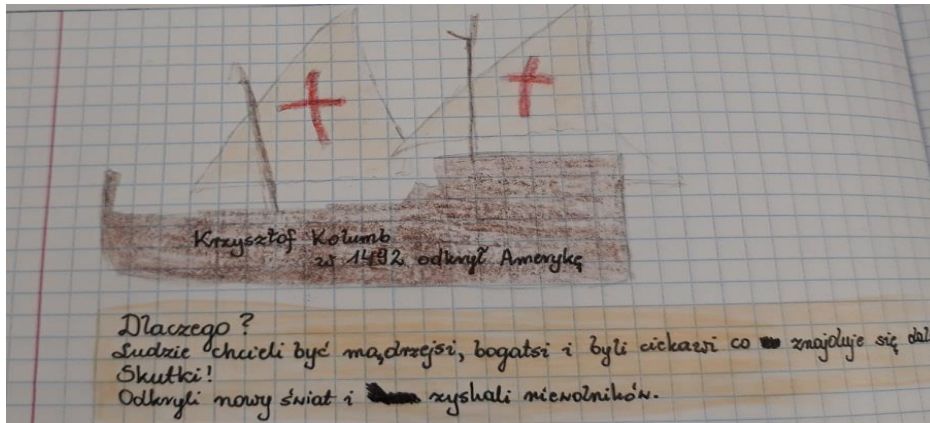 Krzysztof Kolumb
w 1492 odkrył Amerykę
Dlaczego?
Ludzie chcieli być mądrzejsi, bogatsi i byli ciekawi co znajduje się dal
Skutki!
Odkryli nowy świat i zyskali niewolników.